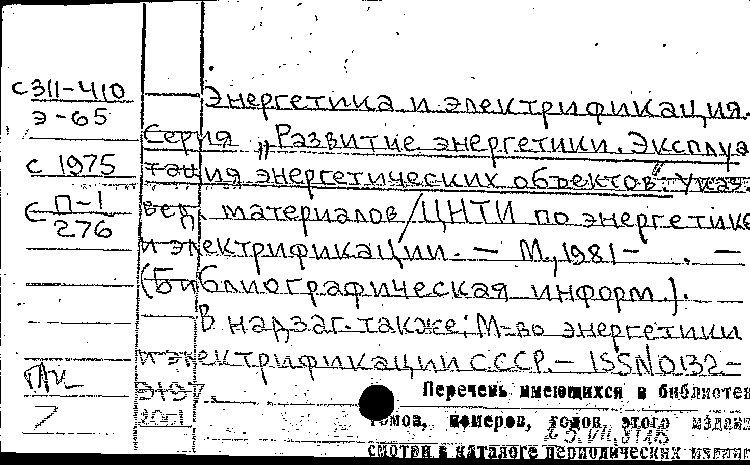 С311-410
Э-65
с 1975
С П-1
276
Энергетика и электрификация.
Серия „Развитие энергетики. Эксплуа
тация энергетических объектов". Указ.
вед. материалов / ЦНТИ по энергетике
и электрификации. — М., 1981 — . —
(Библиографическая информ.).
В надзаг. также: М-во энергетики
и электрификации СССР. — ISSN 0132-
Перечень имеющихся в библиотек
томов, номеров, годов этого издани
смотри в каталоге периодических издани